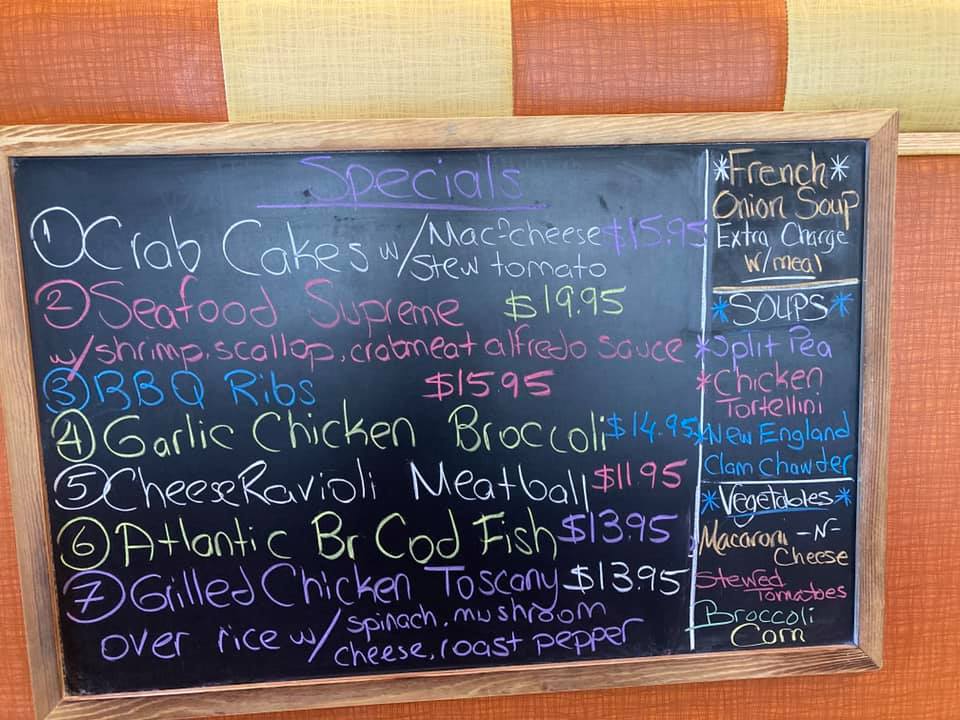 Specials
① Crab Cakes w/ Mac&cheese $15.95
stew tomato
② Seafood Supreme $19.95
w/ shrimp, scallop, crabmeat alfredo sauce
③ BBQ Ribs $15.95
④ Garlic Chicken Broccoli $14.95
⑤ Cheese Ravioli Meatball $11.95
⑥ Atlantic Br Cod Fish $13.95
⑦ Grilled Chicken Toscany $13.95
over rice w/ spinach, mushroom
cheese, roast pepper
*French*
Onion Soup
Extra Charge
w/meal
*SOUPS*
*Split Pea
*Chicken
Tortellini
*New England
Clam Chowder
*Vegetables*
Macaroni -N-
Cheese
Stewed
Tomatoes
Broccoli
Corn